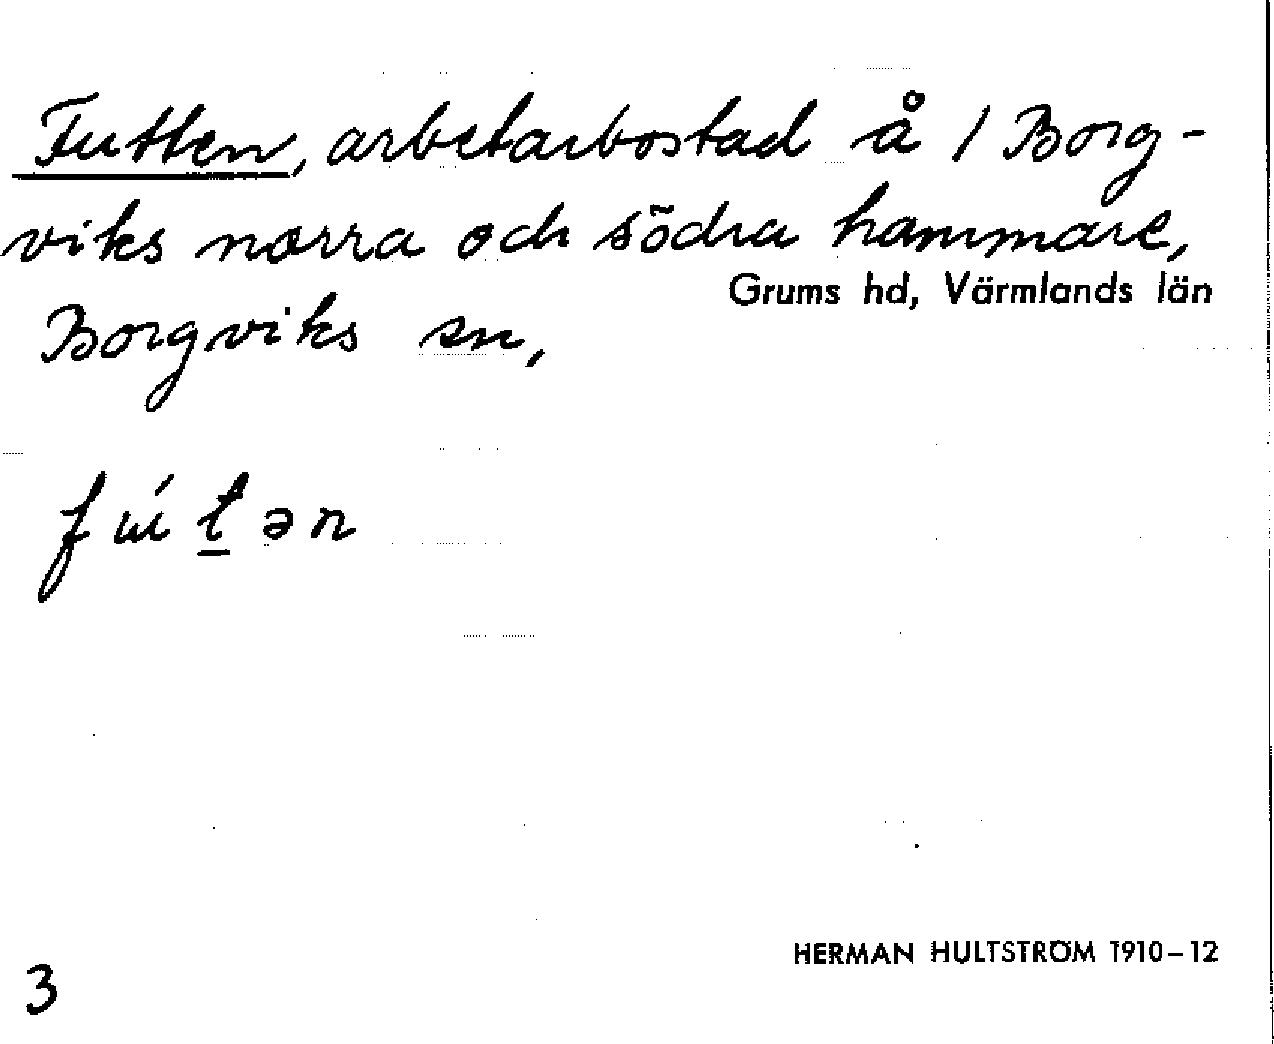 Futten, arbetarbostad å 1 Borg-
viks norra och södra hammare,
Grums hd, Värmlands län
Borgviks sn,
fɯ́t̲ən
HERMAN HULTSTRÖM 1910–12
3